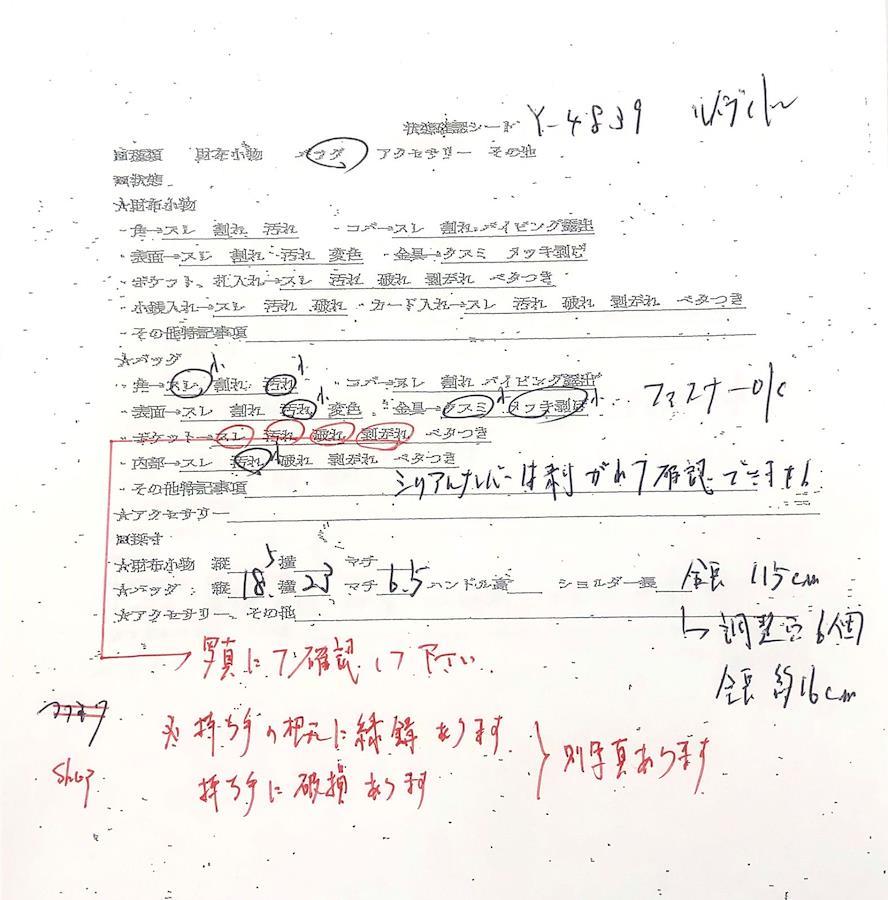 状態確認シート Y-4839 ルイヴィトン
■種類 財布小物 バッグ アクセサリー その他
■状態
★財布小物
・角→スレ 割れ 汚れ ・コバ→スレ 割れ パイピング露出
・表面→スレ 割れ 汚れ 変色 ・金具→クスミ メッキ剥げ
・ポケット、札入れ→スレ 汚れ 破れ 剥がれ ベタつき
・小銭入れ→スレ 汚れ 破れ ・カード入れ→スレ 汚れ 破れ 剥がれ ベタつき
・その他特記事項
★バッグ
・角→スレ 小 割れ 汚れ 小 ・コバ→スレ 割れ パイピング露出
・表面→スレ 割れ 汚れ 小 変色 ・金具→クスミ 小 メッキ剥げ 小 ファスナーO/C
・ポケット→スレ 汚れ 破れ 剥がれ ベタつき
・内部→スレ 汚れ 小 破れ 剥がれ ベタつき
・その他特記事項 シリアルナンバーは剥がれて確認できません
★アクセサリー
■採寸
★財布小物 縦 横 マチ
★バッグ : 縦 18.5 横 23 マチ 6.5 ハンドル高 ショルダー長 全長 115cm
★アクセサリー、その他
↳調整穴6個
全長 約16cm
写真にて確認して下さい
※持ち手の根元に緑錆あります
持ち手に破損あります
}別写真あります
shop